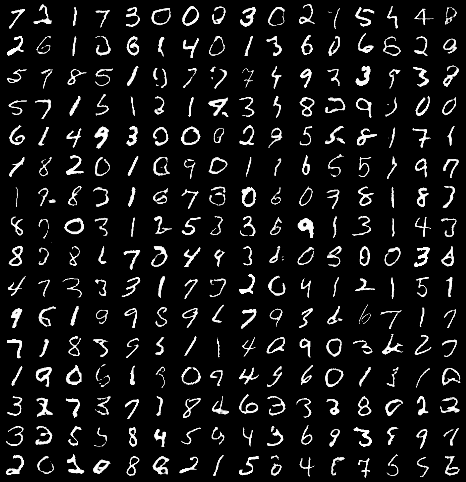 7 2 1 7 3 0 0 0 3 0 2 5 4 4 8
2 6 1 0 6 1 4 0 1 3 6 0 6 8 2 9
5 7 8 5 1 0 7 7 7 4 9 3 3 9 3 8
5 7 1 5 1 2 1 9 3 5 8 9 0 0
6 1 4 9 3 0 0 0 2 9 5 5 8 1 7 1
1 8 2 0 1 0 9 0 1 1 6 5 5 9 7
1 9 8 3 1 6 7 3 0 6 0 7 8 1 8 3
8 9 0 3 1 2 5 3 3 6 9 1 3 1 4 3
8 3 8 6 7 0 4 9 3 0 5 0 0 3 8
4 7 3 3 3 1 7 7 2 0 9 1 2 1 5 1
9 6 1 9 9 8 9 6 7 9 3 6 6 7 1 7
7 1 8 3 9 5 1 1 4 0 9 0 3 2 7
1 9 0 6 1 8 0 9 4 9 6 0 1 1 0
3 2 7 3 7 1 8 4 6 3 3 3 8 0 2 2
3 3 5 5 8 4 5 9 4 3 6 9 3 8 9 1
2 0 1 0 8 8 2 1 5 0 4 8 7 5 5 6